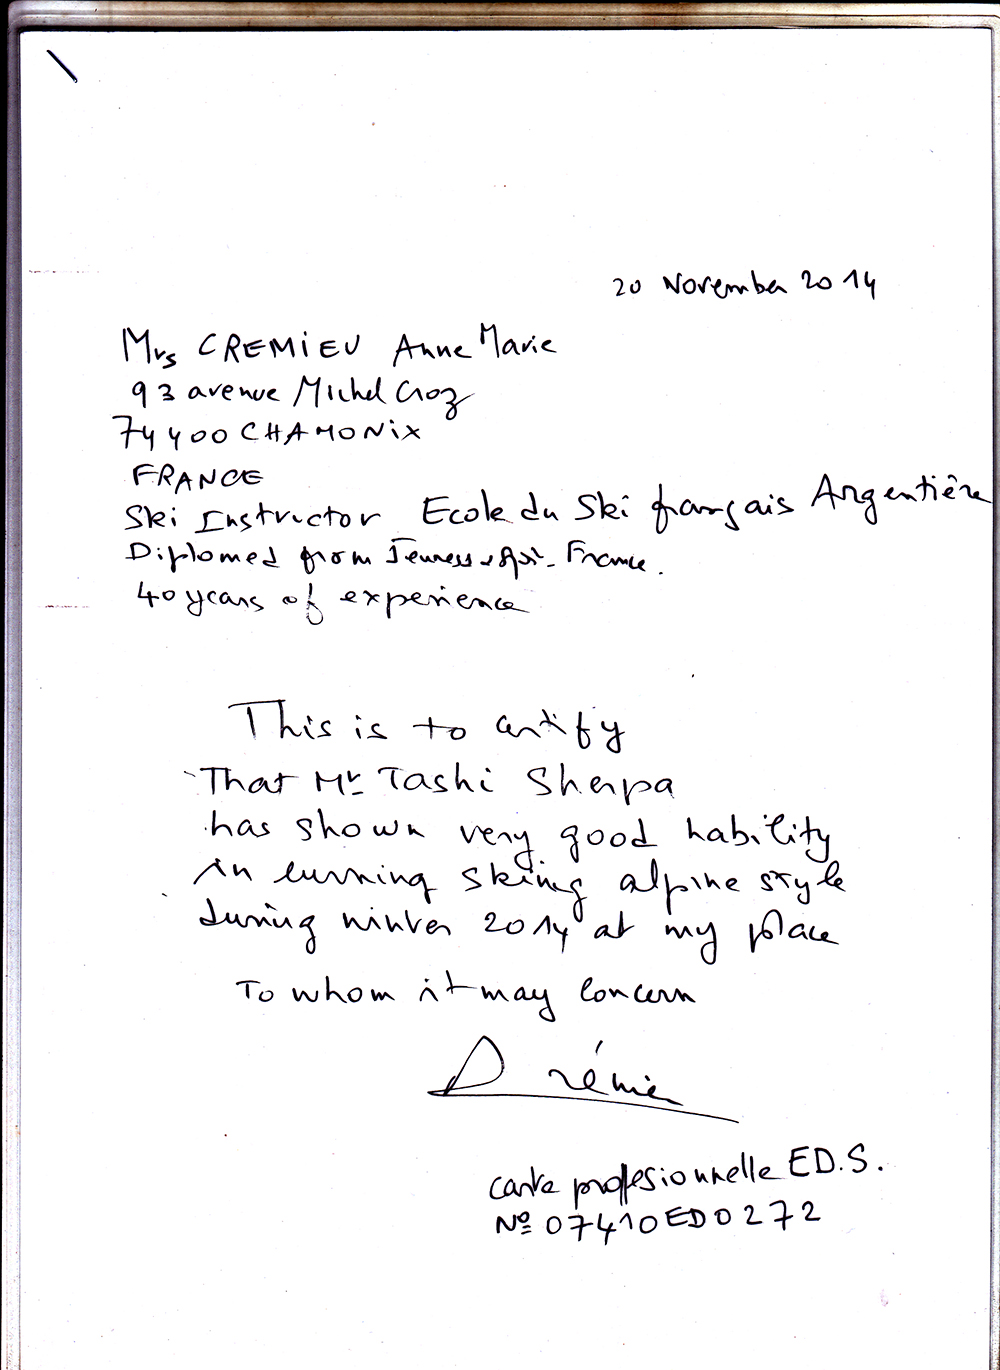 20 November 2014
Mrs CREMiEU Anne Marie
93 avenue Michel Croz
74400 CHAMONiX
FRANCE
Ski Instructor Ecole du Ski français Argentière
Diplomed from Jeunesse France.
40 years of experience
This is to certify
That Mr Tashi Sherpa
has shown very good hability
in lurning skiing alpine style
during winter 2014 at my place
To whom it may concern
carte professionnelle ED.S.
No 07410ED0272